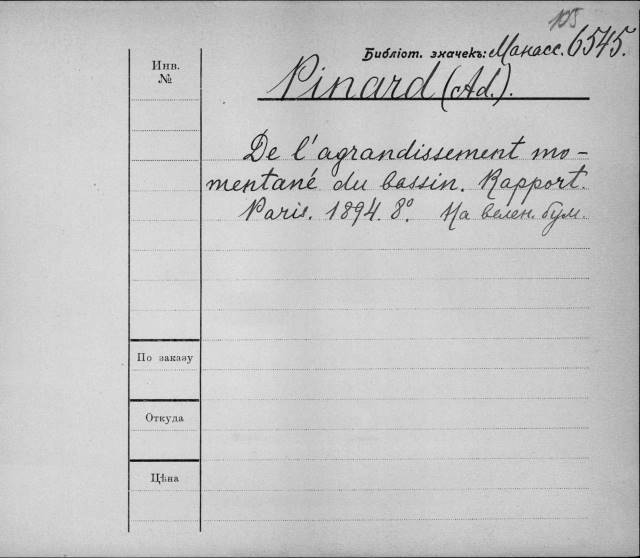 105
Библіот. значекъ: Манасс. 6545.
Инв.
№
Pinard (Ad.).
De l'agrandissement mo-
mentané du bassin. Rapport.
Paris. 1894. 8°. На велен. бум.
По заказу
Откуда
Цѣна